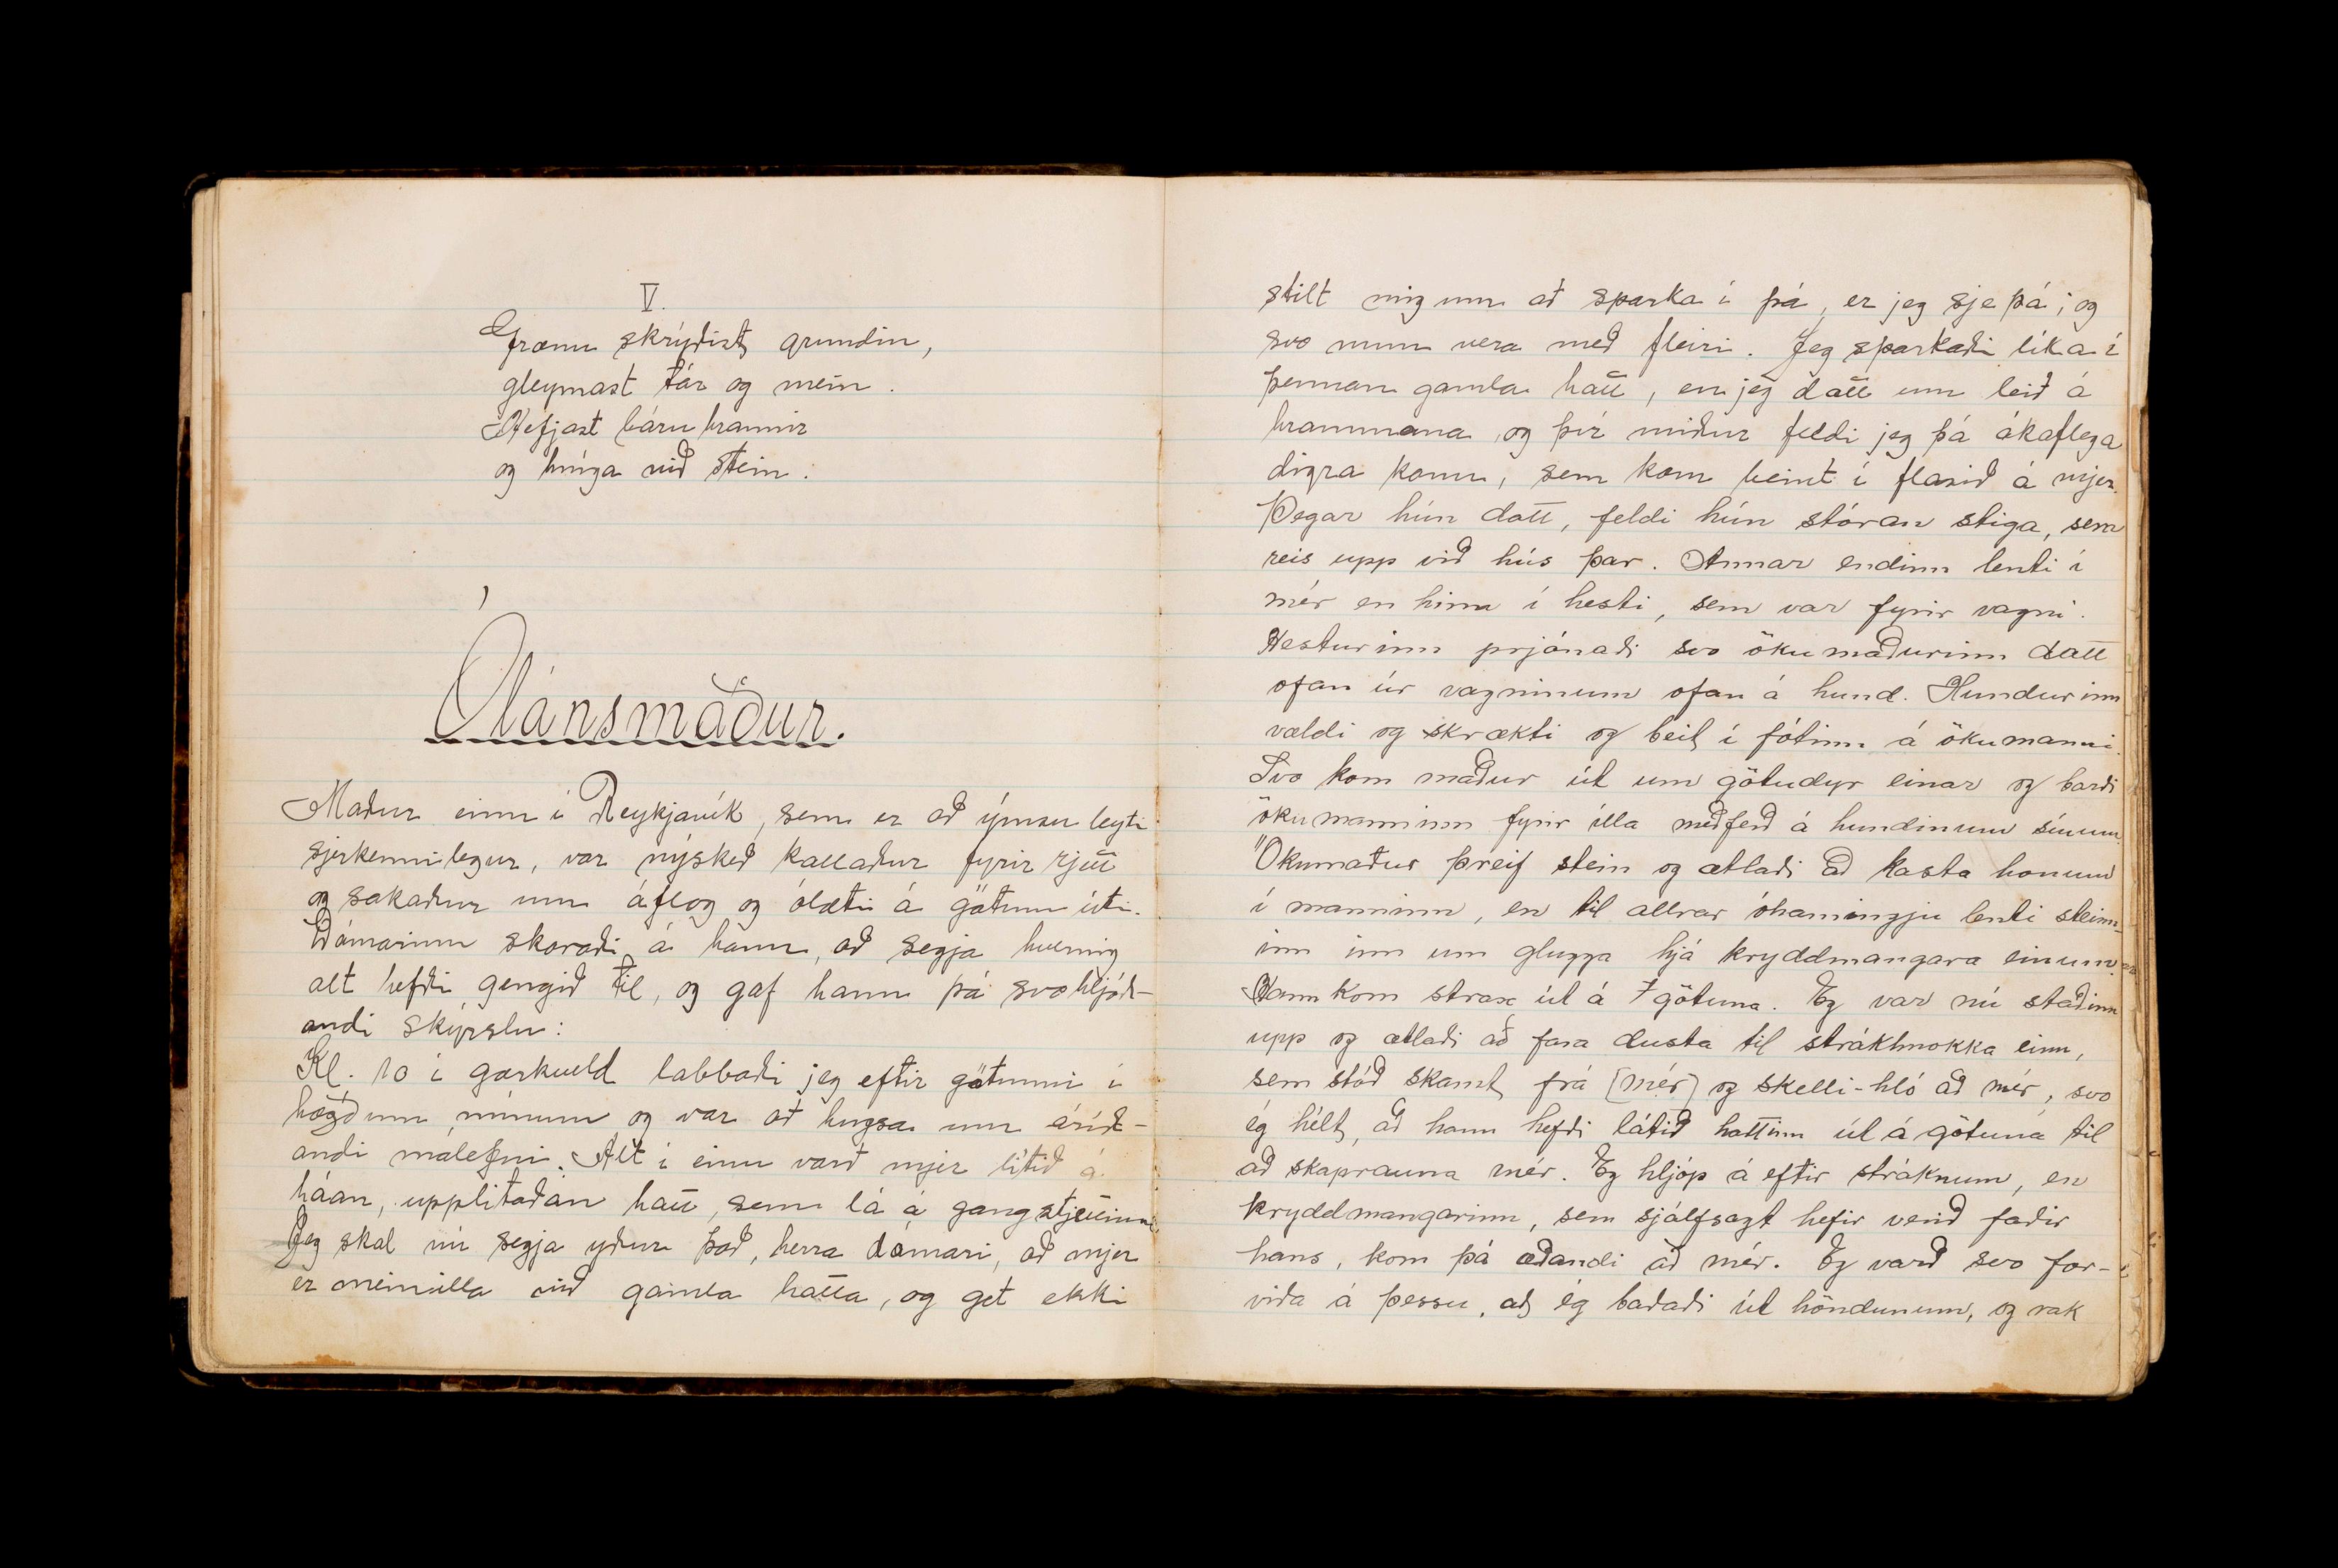 V.
Grænu skrýðist grundin,
gleymast tár og mein.
Hefjast báru hrannir
og hníga við stein.
Ólánsmaður.
Maður einn í Reykjavík, sem er að ýmsu leyti
sjerkennilegur, var nýskeð kallaður fyrir rjett
og sakaður um áflog og ólæti á götum úti.
Dómarinn skoraði á hann, að segja hvernig
alt hefði gengið til, og gaf hann þá svohljóð-
andi skýrslu:
Kl. 10 í gærkveld labbaði jeg eftir götunni í
hægðum mínum og var að hugsa um áríð-
andi málefni. Alt í einu varð mjer litið á
háan, upplitaðan hatt, sem lá á gangstjettinni.
Jeg skal nú segja yður það, herra dómari, að mjer
er meinilla við gamla hatta, og get ekki
stilt mig um að sparka í þá, er jeg sje þá; og
svo mun vera með fleiri. Jeg sparkaði líka í
þennan gamla hatt, en jeg datt um leið á
hrammana, og því miður feldi jeg þá ákaflega
digra konu, sem kom beint í flasið á mjer.
Þegar hún datt, feldi hún stóran stiga, sem
reis upp við hús þar. Annar endinn lenti í
mér en hinn í hesti, sem var fyrir vagni.
Hesturinn prjónaði svo ökumaðurinn datt
ofan úr vagninum ofan á hund. Hundurinn
vældi og skrækti og beit í fótinn á ökumanni.
Svo kom maður út um götudyr einar og barði
ökumanninn fyrir illa meðferð á hundinum sínum.
Ökumaður þreif stein og ætlaði að kasta honum
í manninn, en til allrar óhamingju lenti steinn-
inn inn um glugga hjá kryddmangara einum.
Hann kom strax út á götuna. Eg var nú staðinn
upp og ætlaði að fara dusta til strákhnokka einn,
sem stóð skamt frá [mér] og skelli-hló að mér, svo
ég hélt, að hann hefði látið hattinn út á götuna til
að skaprauna mér. Eg hljóp á eftir stráknum, en
kryddmangarinn, sem sjálfsagt hefir verið faðir
hans, kom þá æðandi að mér. Eg varð svo for-
viða á þessu, að ég baðaði út höndunum, og rak